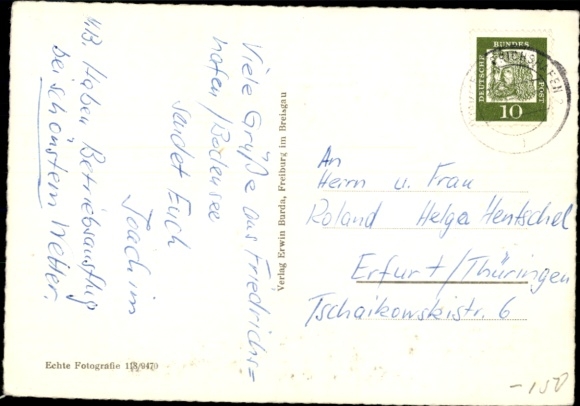 Viele Grüße aus Friedrichs=
hafen/Bodensee
sendet Euch
Joachim
NB. Haben Betriebsausflug
bei schönstem Wetter.
Verlag Erwin Burda, Freiburg im Breisgau
Echte Fotografie
DEUTSCHE
BUNDES
POST
10
An
Herrn u. Frau
Roland Helga Hentschel
Erfurt/Thüringen
Tschaikowskistr. 6
-150